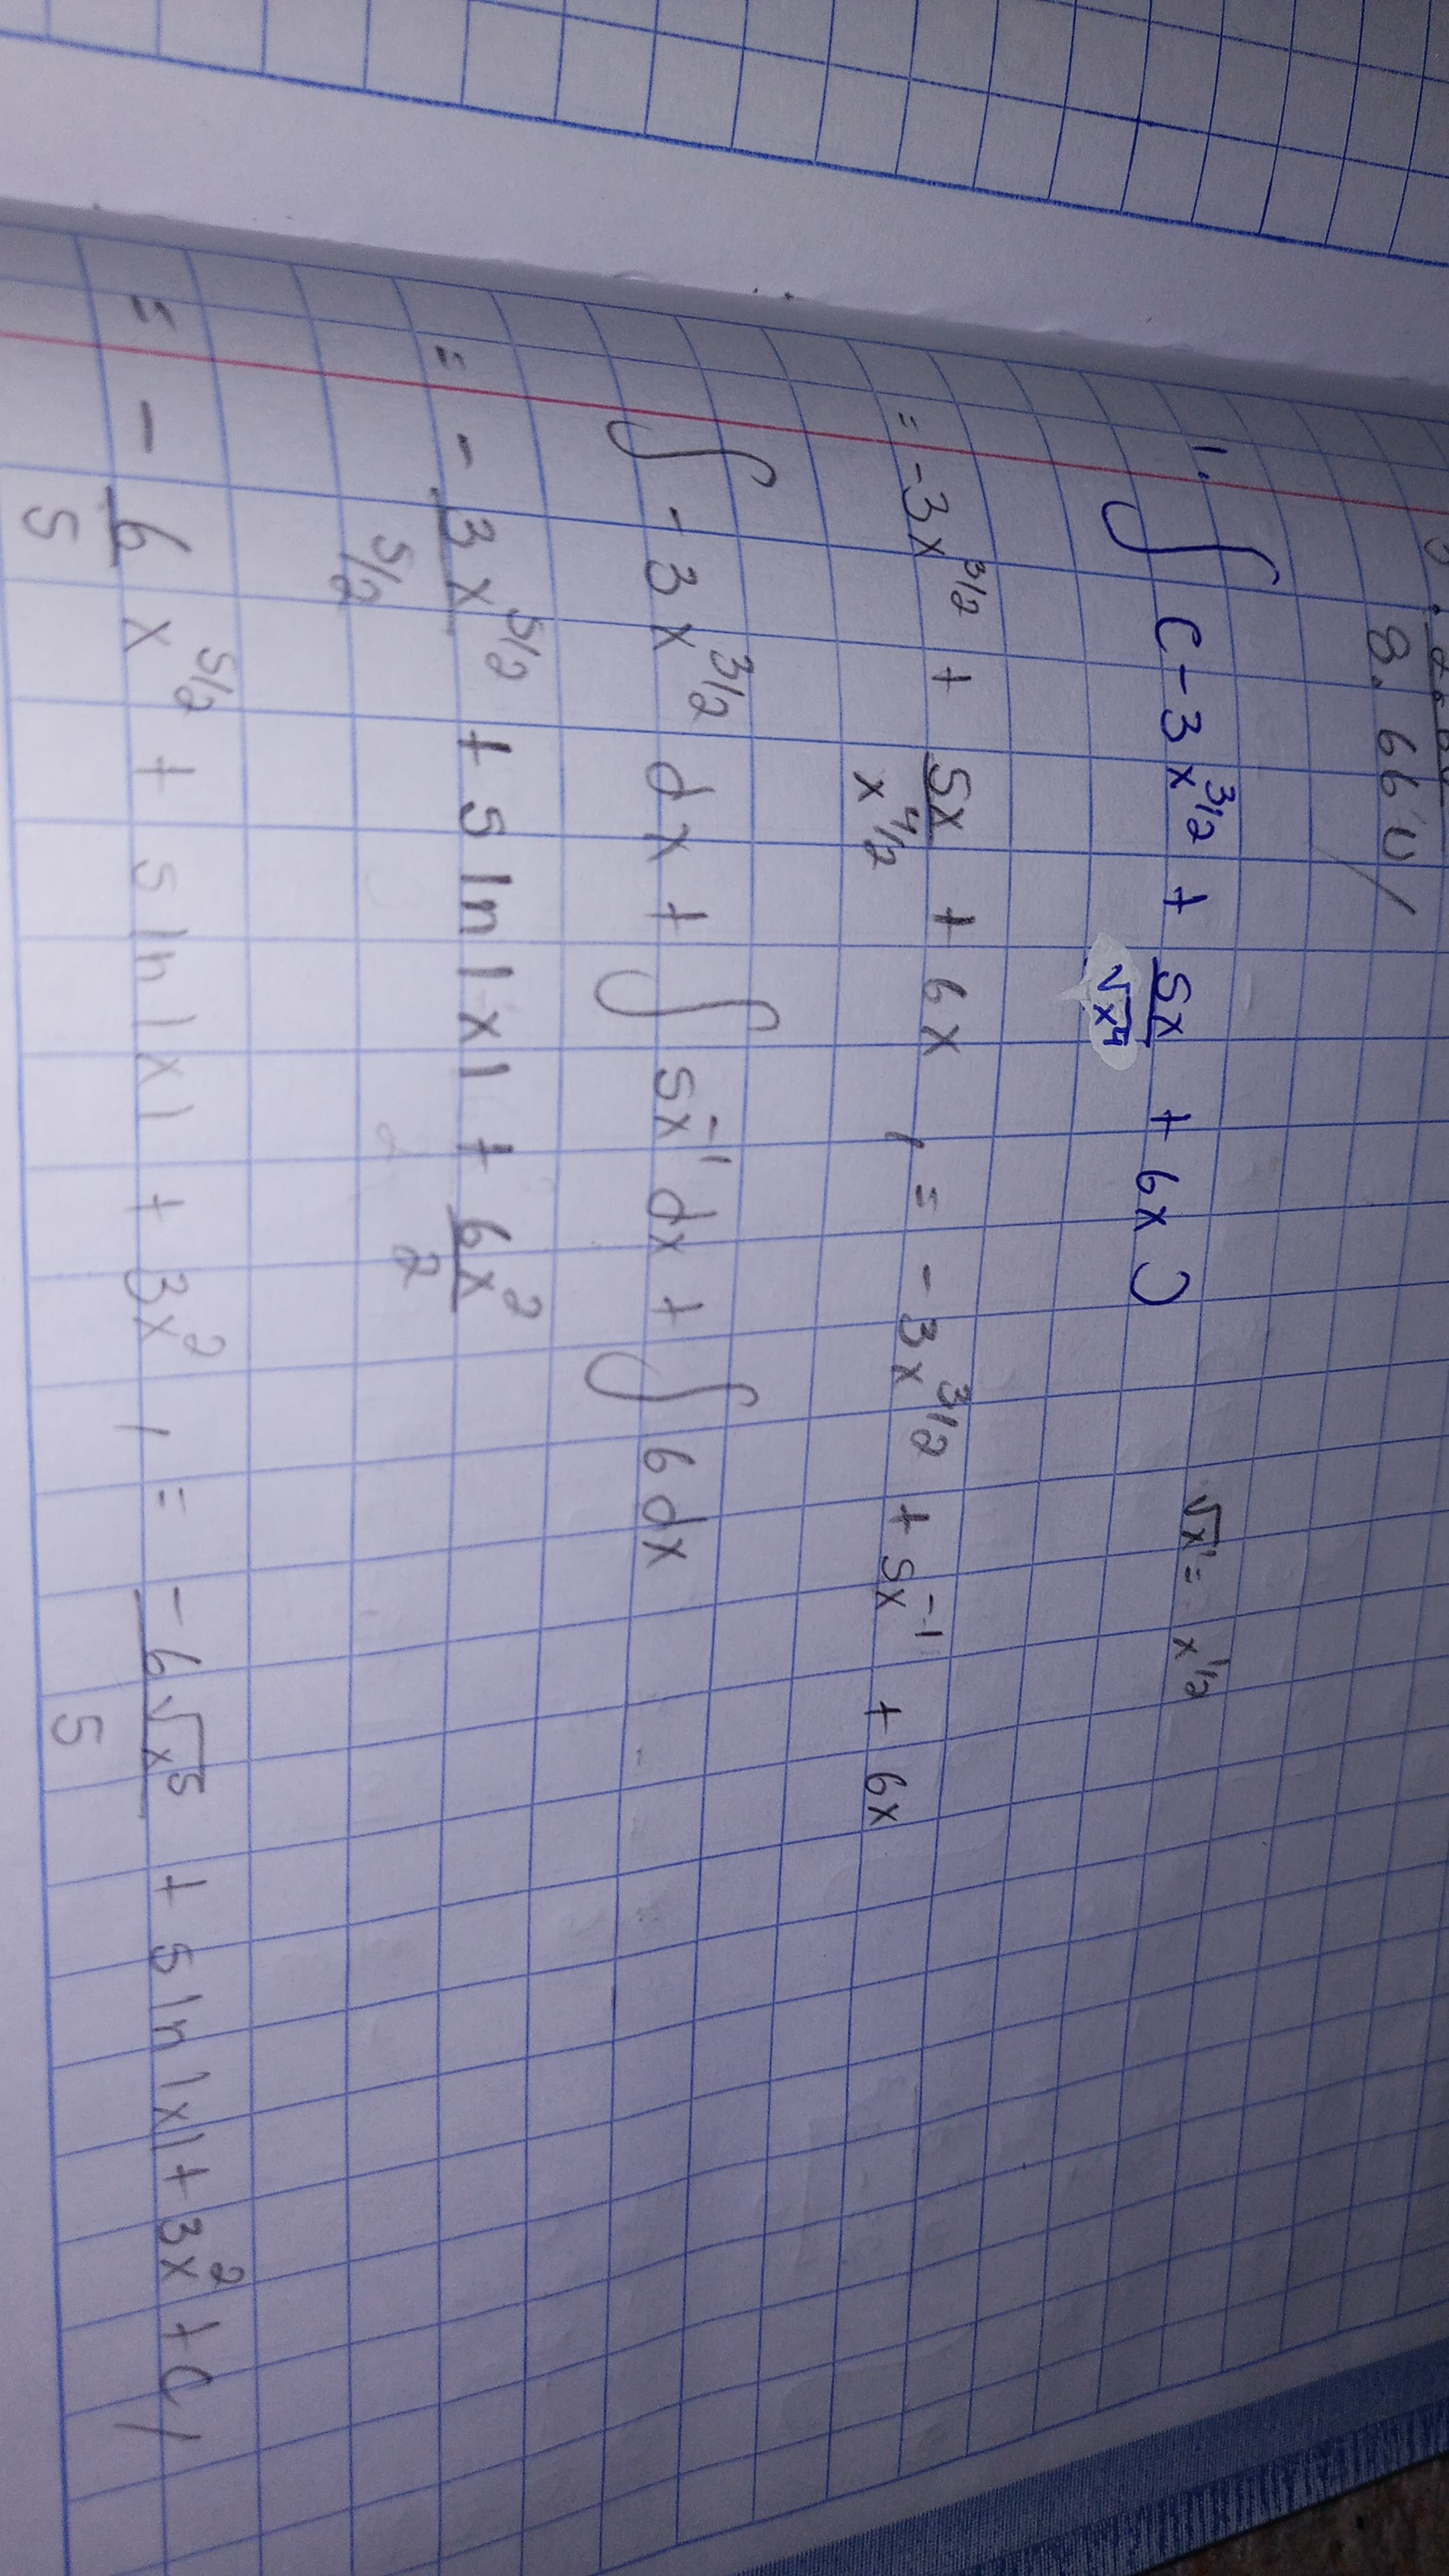 8.66 u/
1. ∫ (-3x^3/2 + 5x/√x^4 + 6x) √x' = x^1/2
= -3x^3/2 + 5x/x^4/2 + 6x , = -3x^3/2 + 5x^-1 + 6x
∫ -3x^3/2 dx + ∫ 5x^-1 dx + ∫ 6 dx
= - 3x^5/2 / 5/2 + 5 ln |x| + 6x^2/2
= - 6/5 x^5/2 + 5 ln |x| + 3x^2 , = -6√x^5/5 + 5 ln |x| + 3x^2 + C /